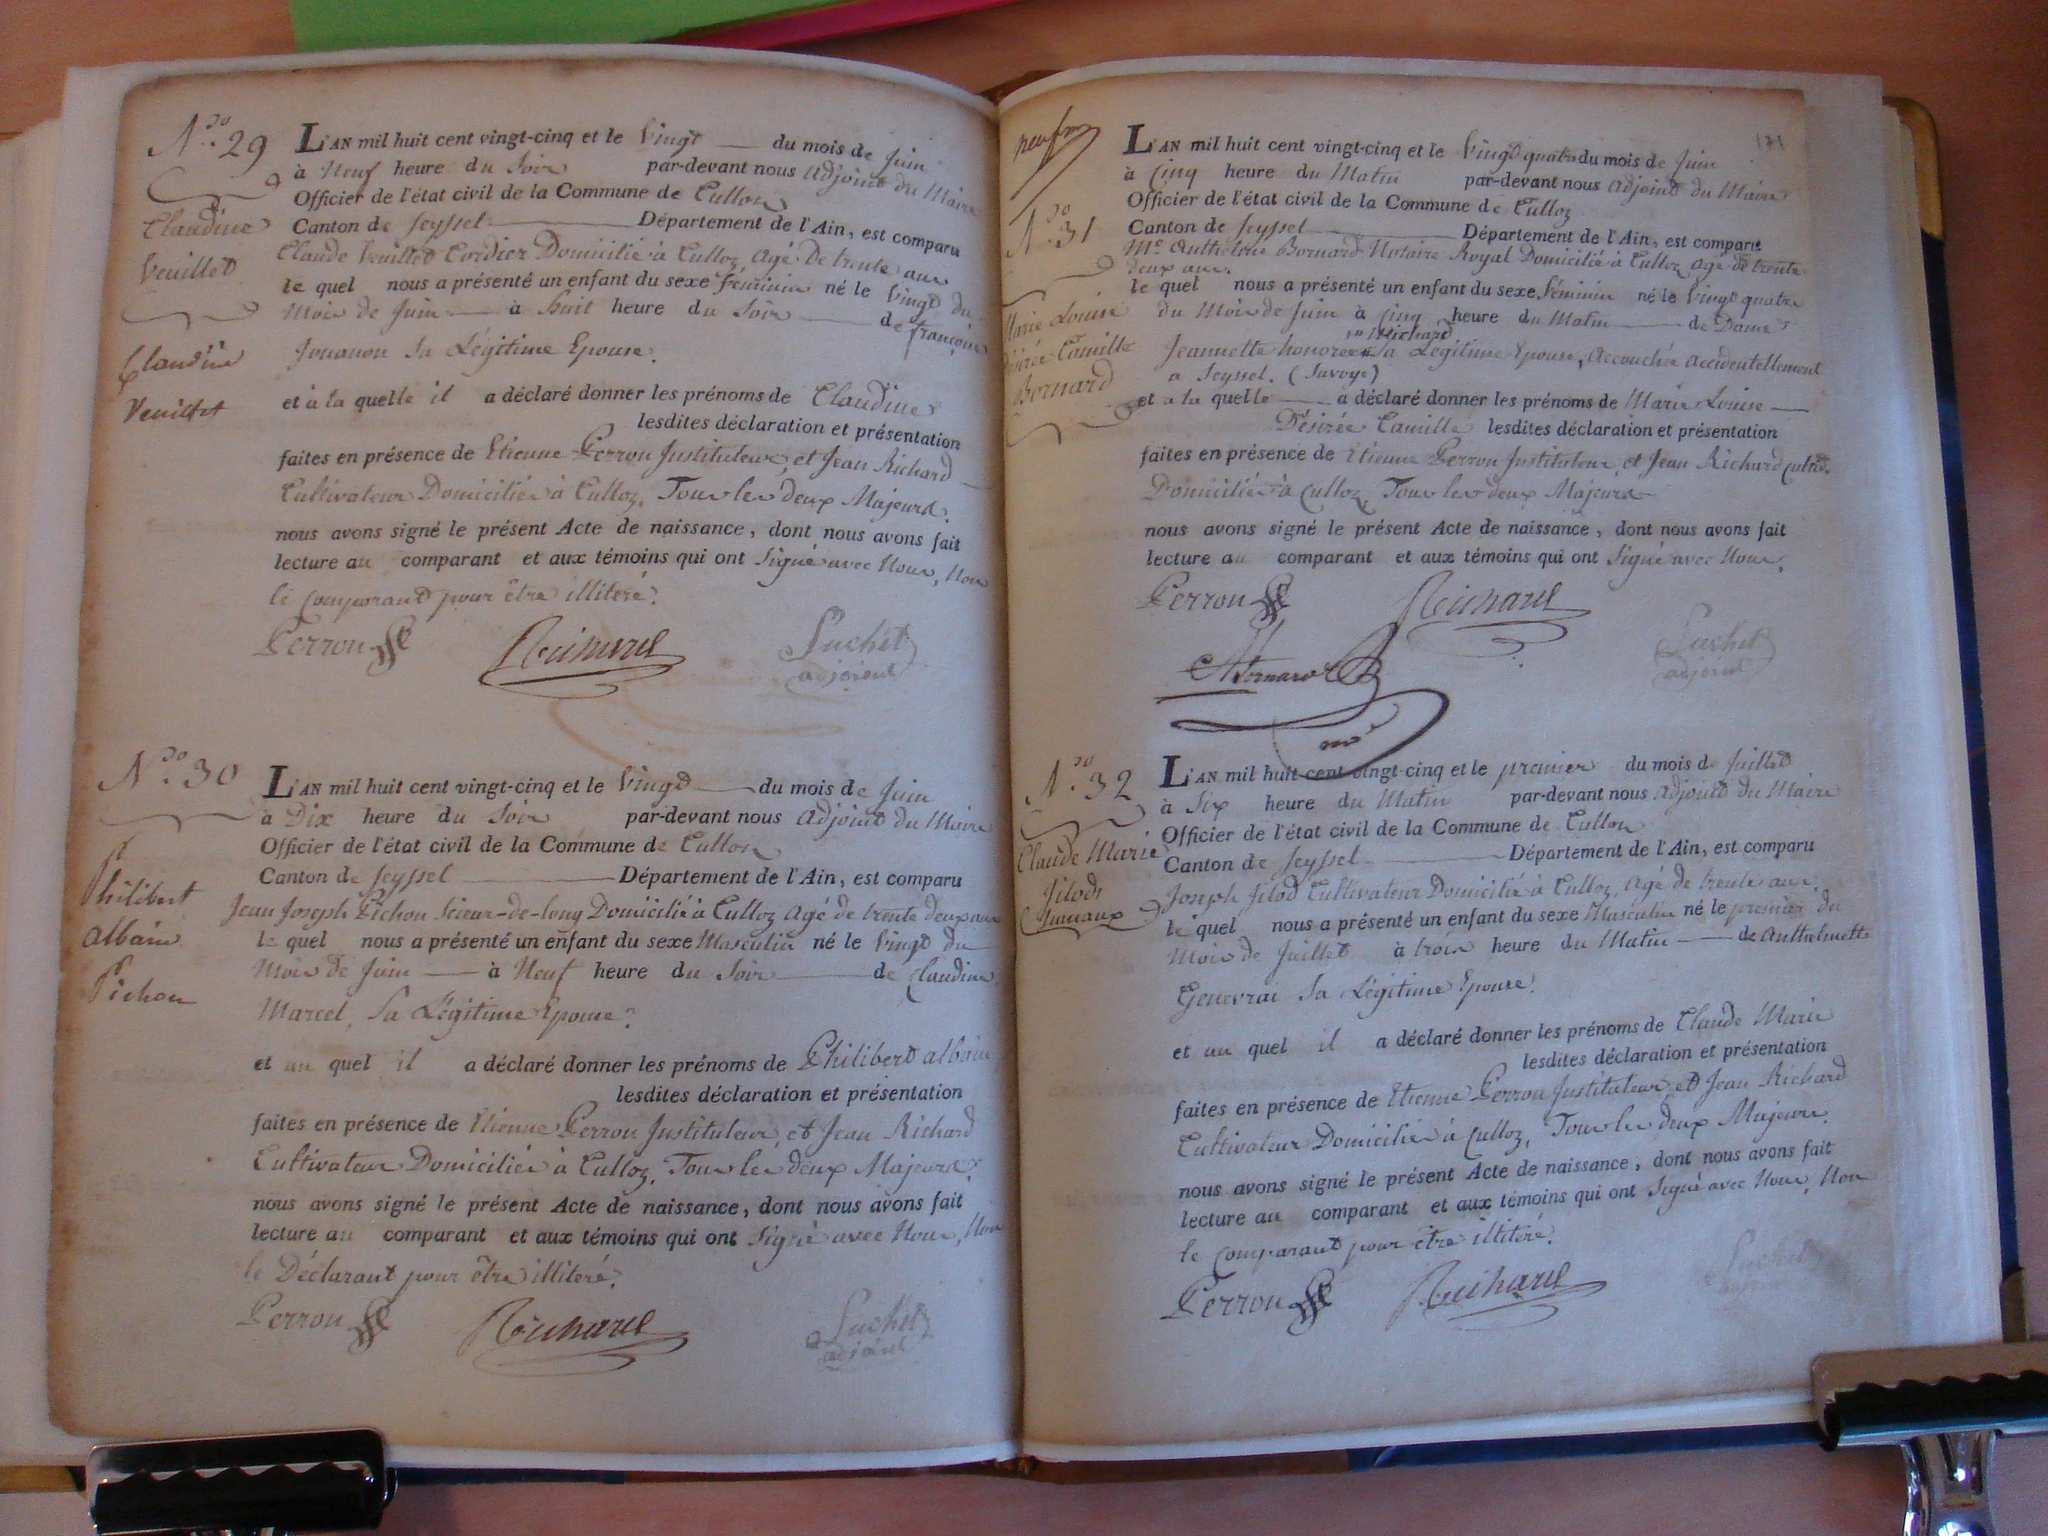 N.ro 29
Claudine
Veuillet
Claudine
Veuillet
L'AN mil huit cent vingt-cinq et le Vingt du mois de Juin
à Neuf heure du Soir par-devant nous adjoint du Maire
Officier de l'état civil de la Commune de Culloz
Canton de Seyssel Département de l'Ain, est comparu
Claude Veuillet Cordier Domicilié à Culloz Agé De trente ans
le quel nous a présenté un enfant du sexe féminin né le Vingt du
Mois de Juin à huit heure du Soir de françoise
Jouanon Sa Légitime Epouse.
et à la quelle il a déclaré donner les prénoms de Claudine
lesdites déclaration et présentation
faites en présence de Etienne Perron Instituteur, et Jean Richard
Cultivateur Domiciliés à Culloz, Tous les deux Majeurs.
nous avons signé le présent Acte de naissance, dont nous avons fait
lecture au comparant et aux témoins qui ont Signé avec Nous, Non
le Comparant pour être illiteré.
Perron Richard Suchet
adjoint
N.ro 30
Philibert
albain
Pichon
L'AN mil huit cent vingt-cinq et le Vingt du mois de Juin
à Dix heure du Soir par-devant nous adjoint du Maire
Officier de l'état civil de la Commune de Culloz
Canton de Seyssel Département de l'Ain, est comparu
Jean Joseph Pichon Scieur-de-long Domicilié à Culloz Agé de trente deux ans
le quel nous a présenté un enfant du sexe Masculin né le Vingt du
Mois de Juin à Neuf heure du Soir de Claudine
Marcel, Sa Légitime Epouse.
et au quel il a déclaré donner les prénoms de Philibert albain
lesdites déclaration et présentation
faites en présence de Etienne Perron Instituteur, et Jean Richard
Cultivateur Domiciliés à Culloz, Tous les deux Majeurs.
nous avons signé le présent Acte de naissance, dont nous avons fait
lecture au comparant et aux témoins qui ont Signé avec Nous, Non
le Déclarant pour être illiteré.
Perron Richard Suchet
adjoint
171
N.ro 31
Marie Louise
Désirée Camille
Bornard
L'AN mil huit cent vingt-cinq et le Vingt quatre du mois de Juin
à Cinq heure du Matin par-devant nous adjoint du Maire
Officier de l'état civil de la Commune de Culloz
Canton de Seyssel Département de l'Ain, est comparu
M.e Anthelme Bornard Notaire Royal Domicilié à Culloz Agé de trente
deux ans.
le quel nous a présenté un enfant du sexe Féminin né le Vingt quatre
du Mois de Juin à Cinq heure du Matin de Dame
Richard
Jeannette honorée Sa Légitime Epouse, Accouchée Accidentellement
a Seyssel. (Savoye)
et a la quelle a déclaré donner les prénoms de Marie Louise
Désirée Camille lesdites déclaration et présentation
faites en présence de Etienne Perron Instituteur, et Jean Richard Cultiv.
Domiciliés à Culloz, Tous les deux Majeurs
nous avons signé le présent Acte de naissance, dont nous avons fait
lecture au comparant et aux témoins qui ont Signé avec Nous.
Perron Richard
Bornard Suchet
adjoint
N.ro 32
Claude Marie
Jilod
L'AN mil huit cent vingt-cinq et le premier du mois de Juillet
à Six heure du Matin par-devant nous adjoint du Maire
Officier de l'état civil de la Commune de Culloz
Canton de Seyssel Département de l'Ain, est comparu
Joseph Jilod Cultivateur Domicilié à Culloz, Agé de trente ans.
le quel nous a présenté un enfant du sexe Masculin né le premier du
Mois de Juillet à trois heure du Matin de Anthelmette
Genevrai Sa Légitime Epouse.
et au quel il a déclaré donner les prénoms de Claude Marie
lesdites déclaration et présentation
faites en présence de Etienne Perron Instituteur, et Jean Richard
Cultivateur Domiciliés à Culloz, Tous les deux Majeurs.
nous avons signé le présent Acte de naissance, dont nous avons fait
lecture au comparant et aux témoins qui ont Signé avec Nous, Non
le Comparant pour être illiteré.
Perron Richard Suchet